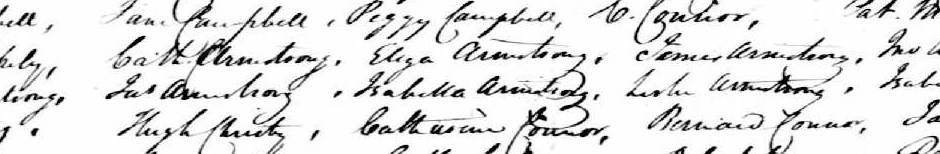 ell, Jane Campbell, Peggy Campbell, C. Connor, Pat. M
Cath Armstrong, Eliza Armstrong, James Armstrong, Jno A
trong, Jas Armstrong, Isabella Armstrong, Armstrong, Isab
Hugh Christy, Catharine Connor, Bernard Connor, Ja